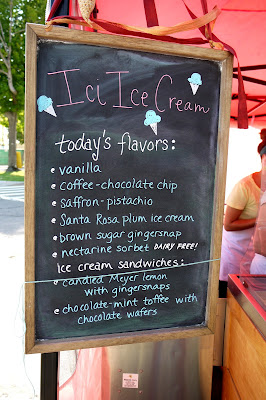 Ici Ice Cream
today's flavors:
• vanilla
• coffee-chocolate chip
• saffron-pistachio
• Santa Rosa plum ice cream
• brown sugar gingersnap
• nectarine sorbet DAIRY FREE!
Ice cream sandwiches:
• candied Meyer lemon
with gingersnaps
• chocolate-mint toffee with
chocolate wafers